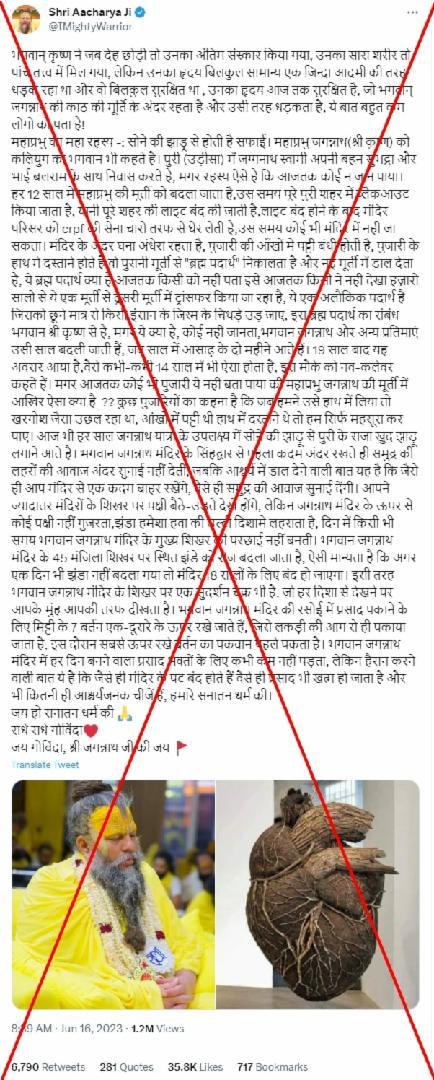 Shri Aacharya Ji
@TMightyWarrior
भगवान् कृष्ण ने जब देह छोड़ी तो उनका अंतिम संस्कार किया गया, उनका सारा शरीर तो
पांच तत्त्व में मिल गया, लेकिन उनका हृदय बिलकुल सामान्य एक जिन्दा आदमी की तरह
धड़क रहा था और वो बिलकुल सुरक्षित था , उनका हृदय आज तक सुरक्षित है, जो भगवान्
जगन्नाथ की काठ की मूर्ति के अंदर रहता है और उसी तरह धड़कता है, ये बात बहुत कम
लोगो को पता है!
महाप्रभु का महा रहस्य -: सोने की झाड़ू से होती है सफाई। महाप्रभु जगन्नाथ(श्री कृष्ण) को
कलियुग का भगवान भी कहते है। पुरी (उड़ीसा) में जगन्नाथ स्वामी अपनी बहन सुभद्रा और
भाई बलराम के साथ निवास करते है, मगर रहस्य ऐसे है कि आजतक कोई न जान पाया।
हर 12 साल में महाप्रभु की मूर्ती को बदला जाता है,उस समय पूरे पुरी शहर में ब्लैकआउट
किया जाता है, यानी पूरे शहर की लाइट बंद की जाती है,लाइट बंद होने के बाद मंदिर
परिसर को crpf की सेना चारो तरफ से घेर लेती है,उस समय कोई भी मंदिर में नही जा
सकता। मंदिर के अंदर घना अंधेरा रहता है, पुजारी की आँखों मे पट्टी बंधी होती है, पुजारी के
हाथ मे दस्ताने होते है,वो पुरानी मूर्ती से "ब्रह्म पदार्थ" निकालता है और नई मूर्ती में डाल देता
है, ये ब्रह्म पदार्थ क्या है आजतक किसी को नही पता इसे आजतक किसी ने नही देखा हज़ारो
सालो से ये एक मूर्ती से दूसरी मूर्ती में ट्रांसफर किया जा रहा है, ये एक अलौकिक पदार्थ है
जिसको छूने मात्र से किसी इंसान के जिस्म के चिथड़े उड़ जाए, इस ब्रह्म पदार्थ का संबंध
भगवान श्री कृष्ण से है, मगर ये क्या है, कोई नही जानता,भगवान जगन्नाथ और अन्य प्रतिमाएं
उसी साल बदली जाती हैं, जब साल में आसाढ़ के दो महीने आते हैं। 19 साल बाद यह
अवसर आया है,वैसे कभी-कभी 14 साल में भी ऐसा होता है, इस मौके को नव-कलेवर
कहते हैं। मगर आजतक कोई भी पुजारी ये नही बता पाया की महाप्रभु जगन्नाथ की मूर्ती में
आखिर ऐसा क्या है ?? कुछ पुजारियों का कहना है कि जब हमने उसे हाथ में लिया तो
खरगोश जैसा उछल रहा था, आंखों में पट्टी थी हाथ में दस्ताने थे तो हम सिर्फ महसूस कर
पाए। आज भी हर साल जगन्नाथ यात्रा के उपलक्ष्य में सोने की झाड़ू से पुरी के राजा खुद झाड़ू
लगाने आते है। भगवान जगन्नाथ मंदिर के सिंहद्वार से पहला कदम अंदर रखते ही समुद्र की
लहरों की आवाज अंदर सुनाई नहीं देती, जबकि आश्चर्य में डाल देने वाली बात यह है कि जैसे
ही आप मंदिर से एक कदम बाहर रखेंगे, वैसे ही समुद्र की आवाज सुनाई देंगी। आपने
ज्यादातर मंदिरों के शिखर पर पक्षी बैठे-उड़ते देखे होंगे, लेकिन जगन्नाथ मंदिर के ऊपर से
कोई पक्षी नहीं गुजरता,झंडा हमेशा हवा की उल्टी दिशामे लहराता है, दिन में किसी भी
समय भगवान जगन्नाथ मंदिर के मुख्य शिखर की परछाई नहीं बनती। भगवान जगन्नाथ
मंदिर के 45 मंजिला शिखर पर स्थित झंडे को रोज बदला जाता है, ऐसी मान्यता है कि अगर
एक दिन भी झंडा नहीं बदला गया तो मंदिर 18 सालों के लिए बंद हो जाएगा। इसी तरह
भगवान जगन्नाथ मंदिर के शिखर पर एक सुदर्शन चक्र भी है, जो हर दिशा से देखने पर
आपके मुंह आपकी तरफ दीखता है। भगवान जगन्नाथ मंदिर की रसोई में प्रसाद पकाने के
लिए मिट्टी के 7 बर्तन एक-दूसरे के ऊपर रखे जाते हैं, जिसे लकड़ी की आग से ही पकाया
जाता है, इस दौरान सबसे ऊपर रखे बर्तन का पकवान पहले पकता है। भगवान जगन्नाथ
मंदिर में हर दिन बनने वाला प्रसाद भक्तों के लिए कभी कम नहीं पड़ता, लेकिन हैरान करने
वाली बात ये है कि जैसे ही मंदिर के पट बंद होते हैं वैसे ही प्रसाद भी खत्म हो जाता है और
भी कितनी ही आश्चर्यजनक चीजें हैं, हमारे सनातन धर्म की।
जय हो सनातन धर्म की 🙏
राधे राधे गोविंदा❤️
जय गोविंदा, श्री जगन्नाथ जी की जय 🚩
Translate Tweet
8:39 AM · Jun 16, 2023 · 1.2M Views
6,790 Retweets 281 Quotes 35.8K Likes 717 Bookmarks